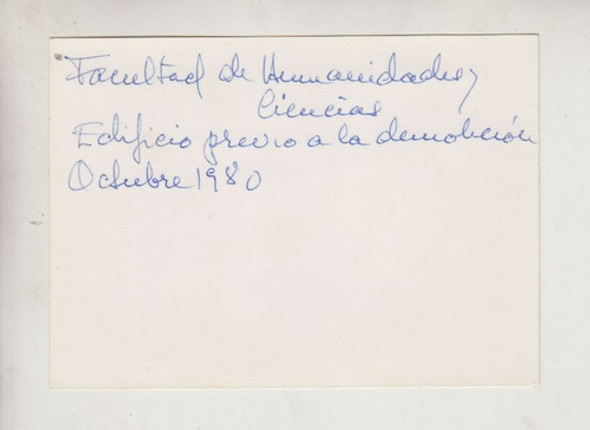 Facultad de Humanidades y
Ciencias
Edificio previo a la demolición
Octubre 1980